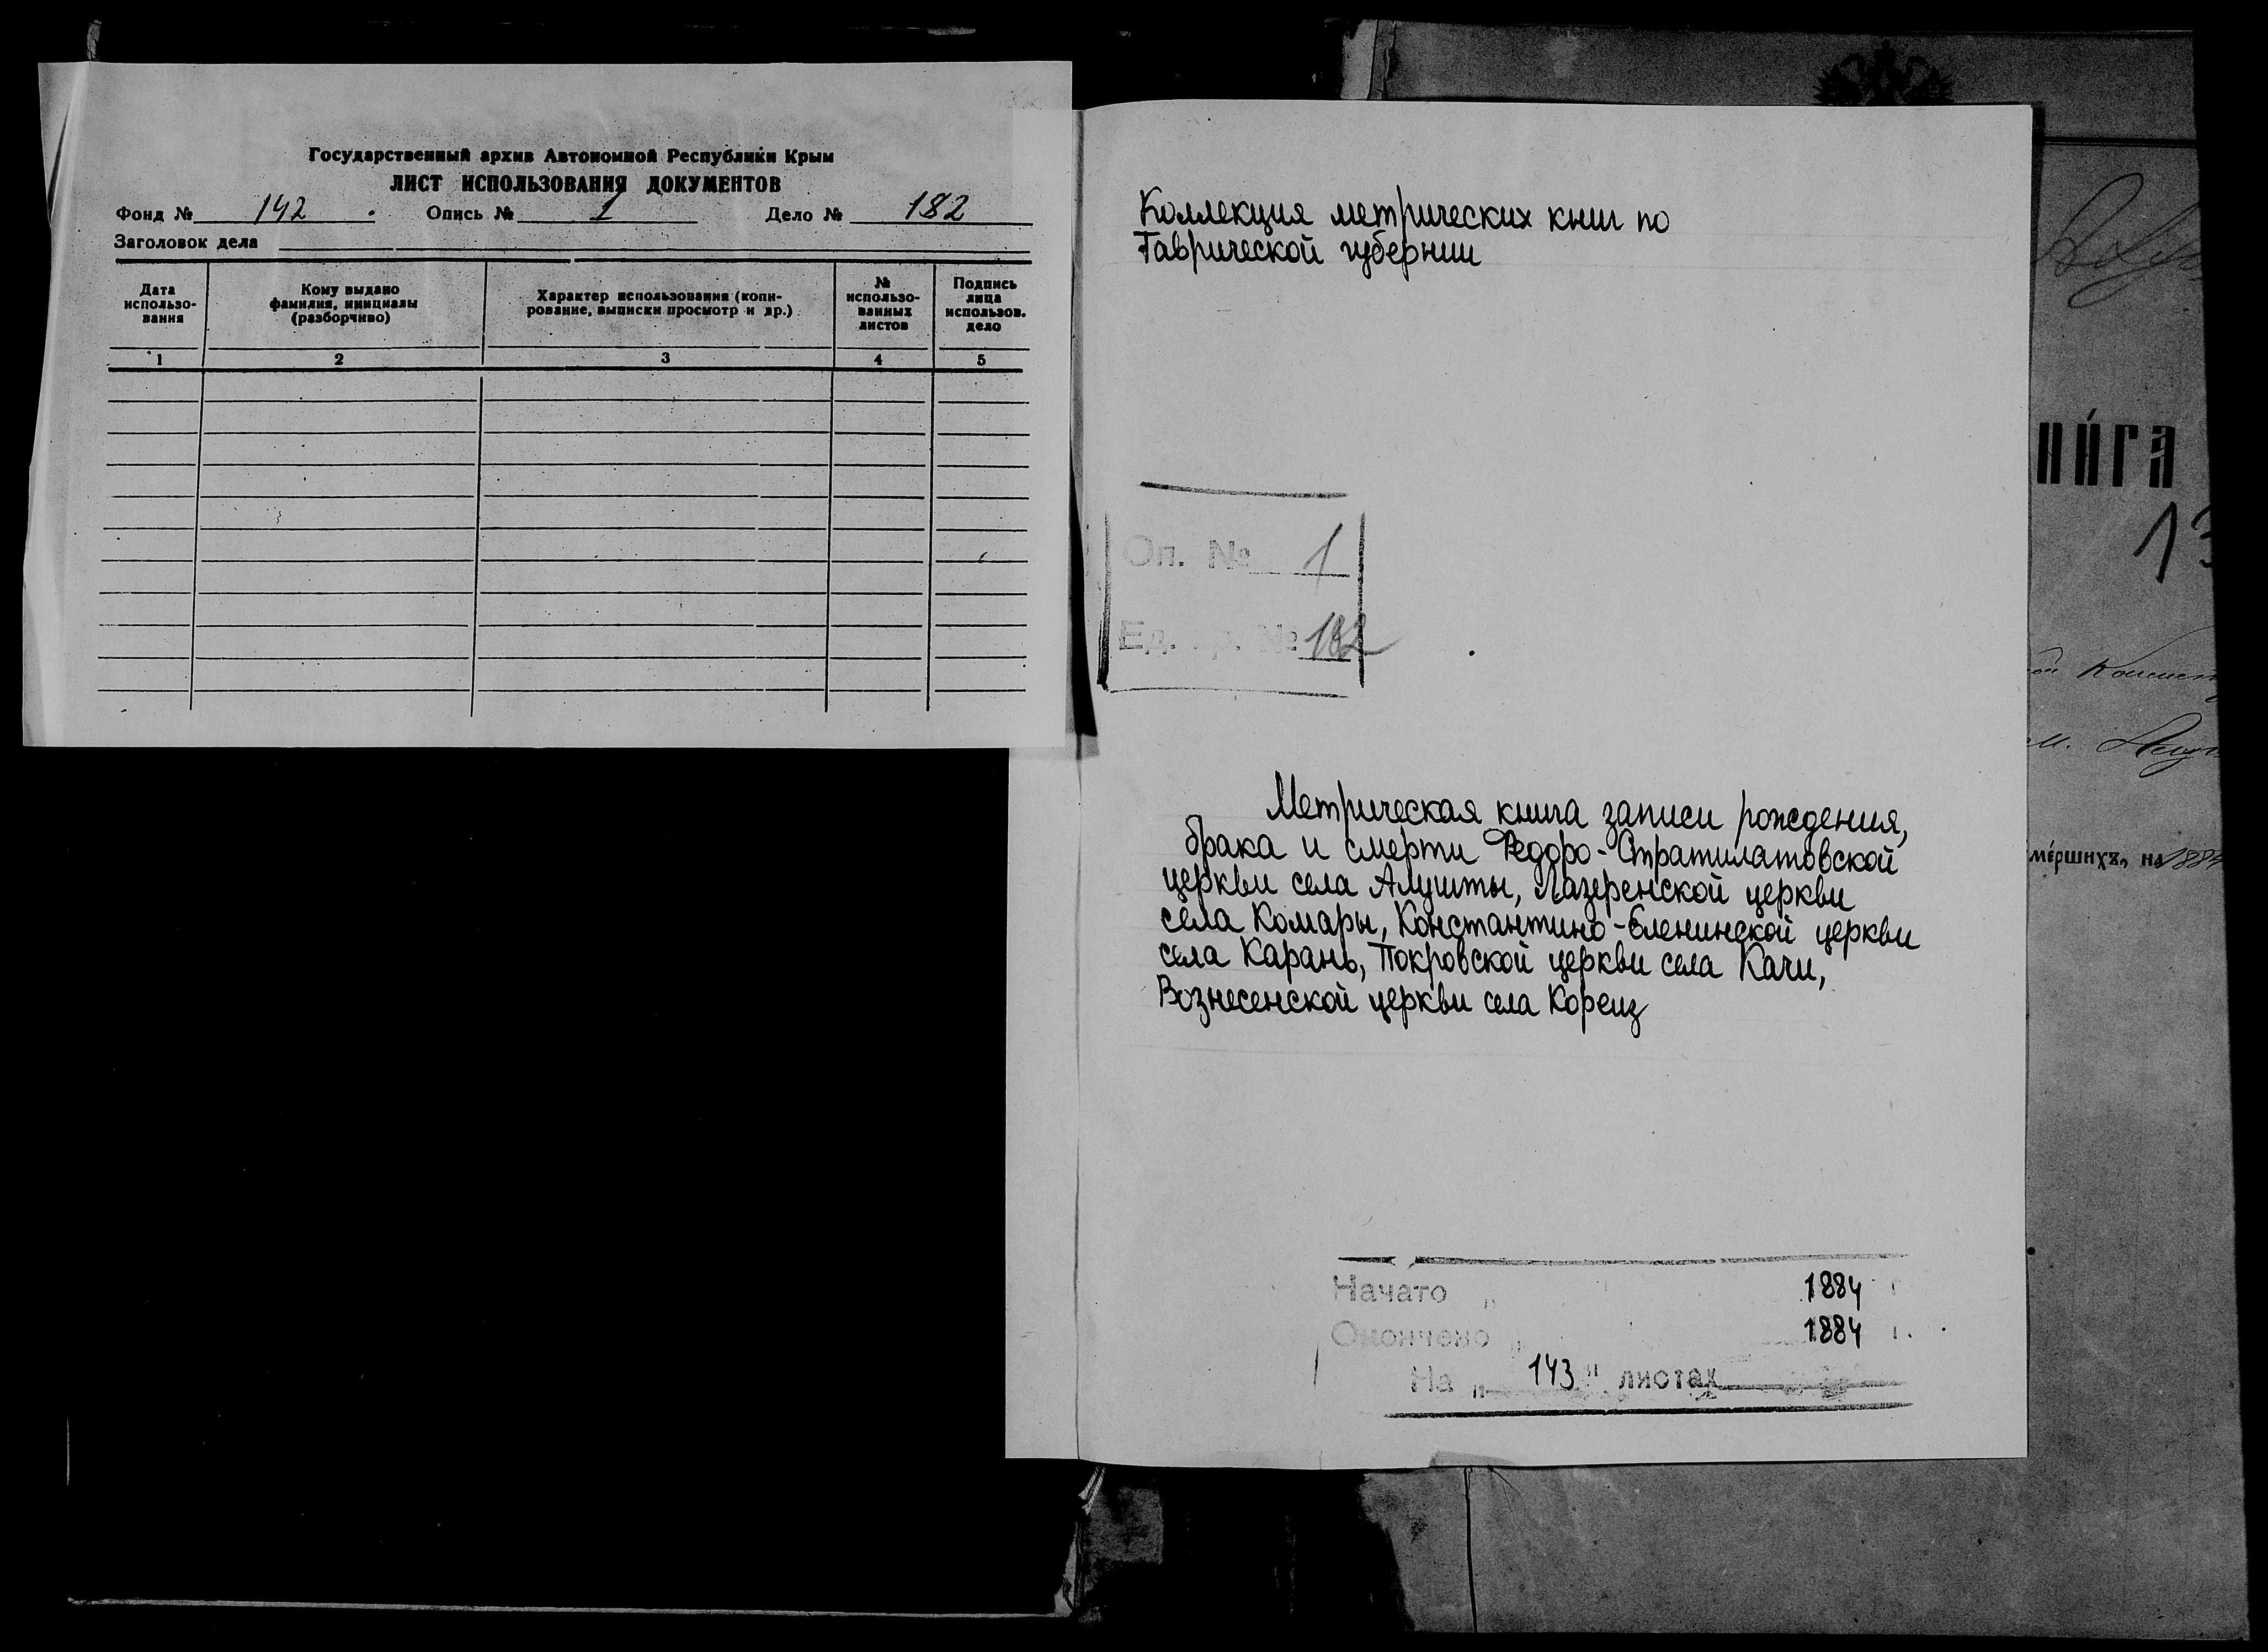 Государственный архив Автономной Республики Крым
ЛИСТ ИСПОЛЬЗОВАНИЯ ДОКУМЕНТОВ
Фонд № 142. Опись № 1 Дело № 182
Заголовок дела
Дата использо-вания
Кому выдано фамилия, инициалы (разборчиво)
Характер использования (копи-рование, выписки просмотр и др.)
№ использо-ванных листов
Подпись лица использов. дело
1 2 3 4 5
Коллекция метрических книг по
Таврической губернии
Оп. № 1
Ед. хр. № 182
Метрическая книга записи рождения,
брака и смерти Федоро-Стратилатовской
церкви села Алушты, Лазеренской церкви
села Комары, Константино-Еленинской церкви
села Карань, Покровской церкви села Качи,
Вознесенской церкви села Кореиз
Начато " 1884 г.
Окончено " 1884 г.
На " 143 " листах
нига
13
мершихъ, на 1884